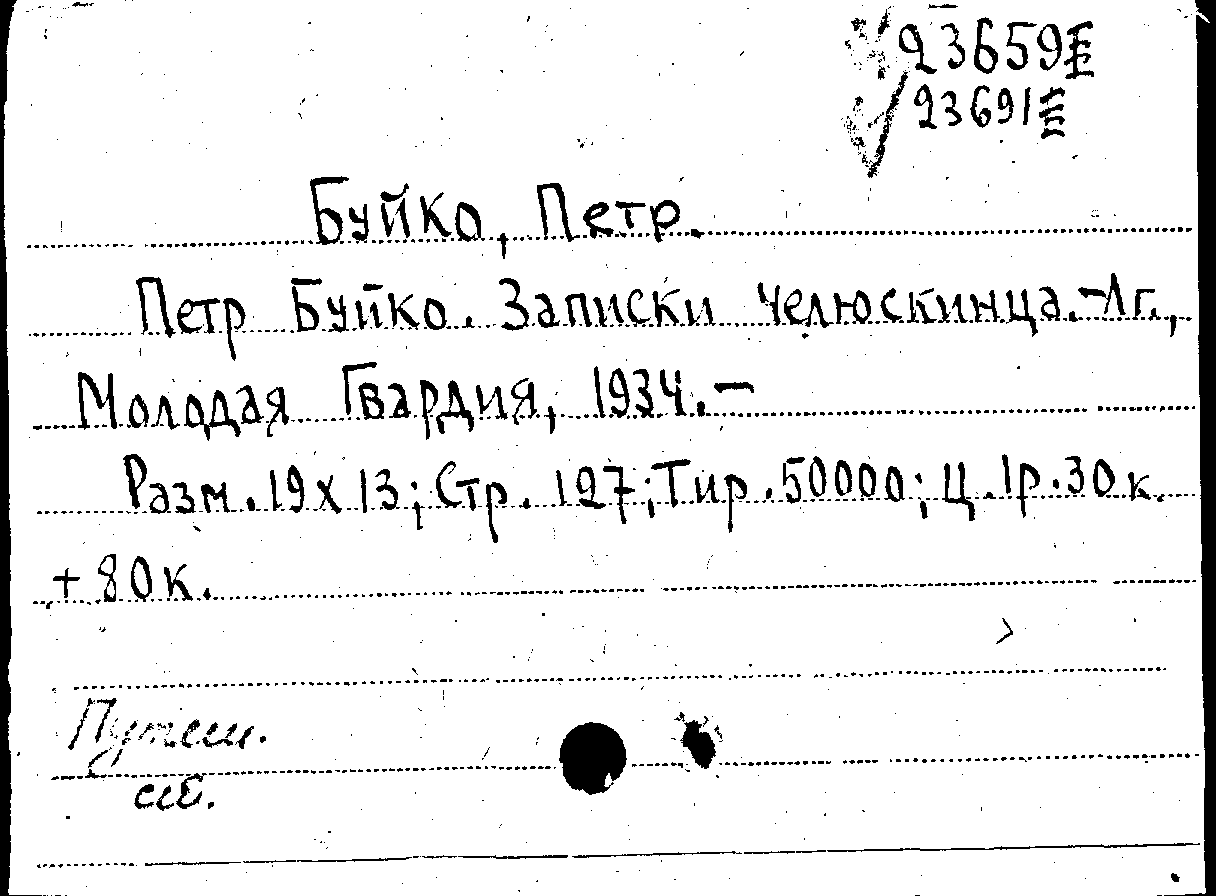 23659
23691
Буйко, Петр.
Петр Буйко. Записки челюскинца.-Лг.,
Молодая Гвардия, 1934.-
Разм.19х13; Стр. 127; Тир.50000; Ц.1р.30к.
+ 80к.
Путеш.